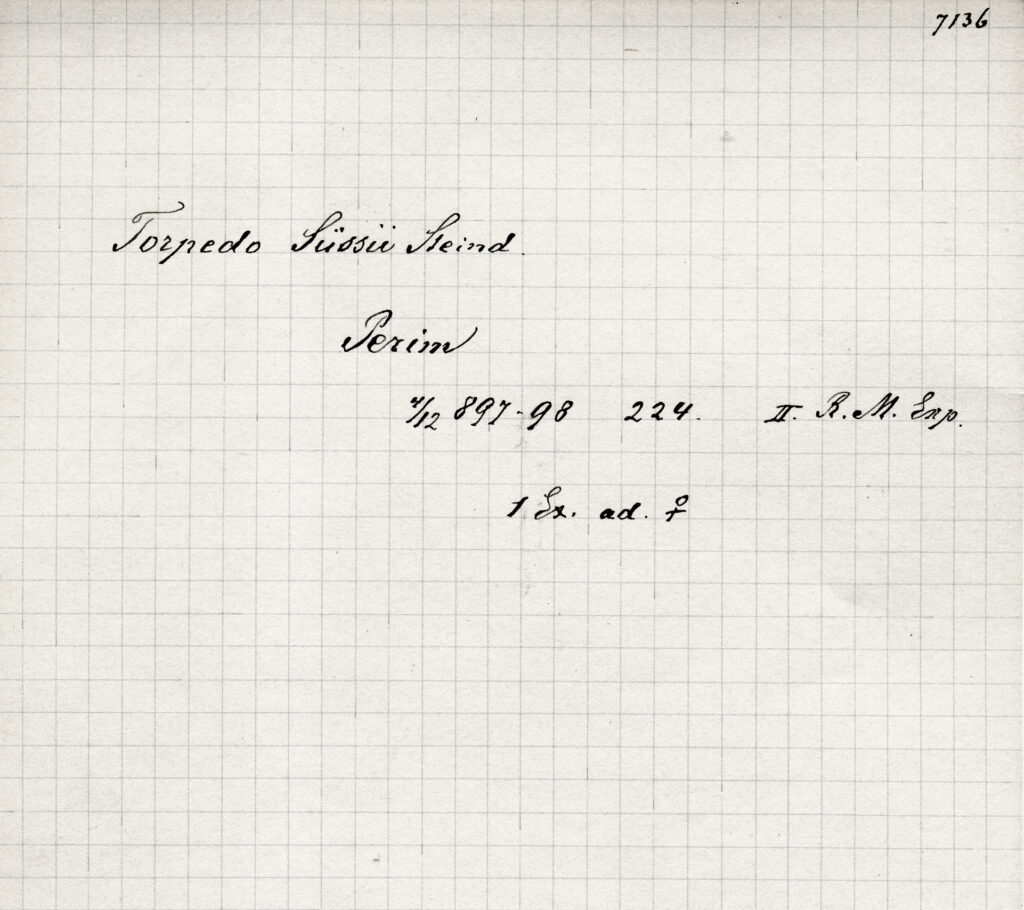 7136
Torpedo Süssii Steind.
Perim
4/12 897-98 224. II. R. M. Exp.
1 Ex. ad. ♀